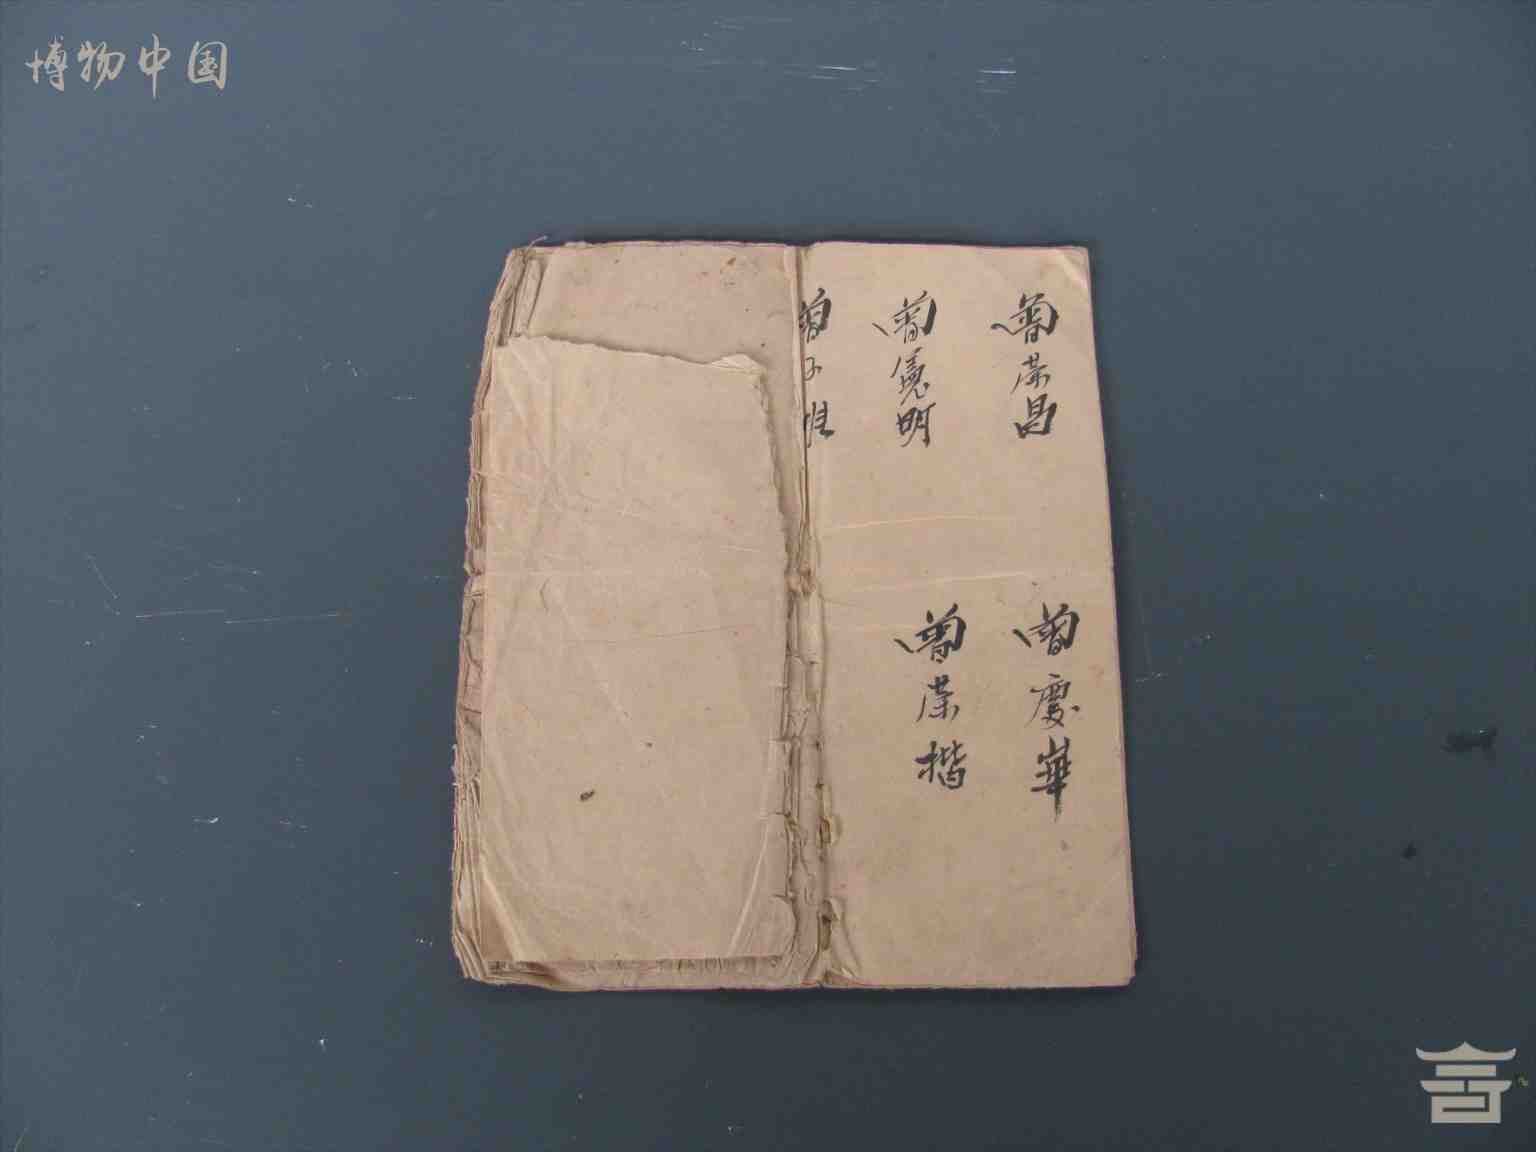 博物中国
曾荣昌
曾慶華
曾憲明
曾荣楷
曾子